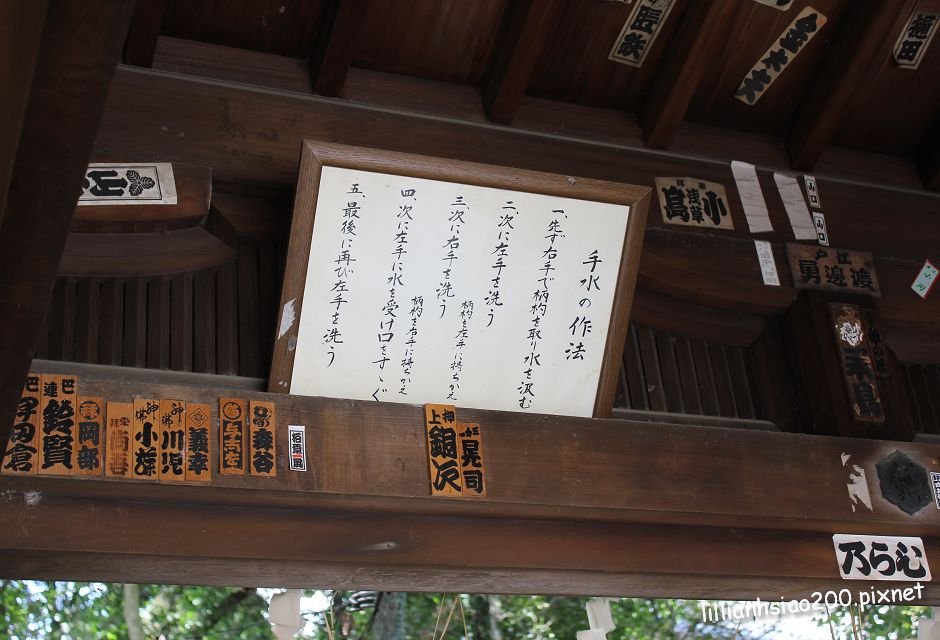 手水の作法
一、先ず右手で柄杓を取り水を汲む
二、次に左手を洗う
柄杓を左手に持ちかえ
三、次に右手を洗う
柄杓を右手に持ちかえ
四、次に左手に水を受け口をすゝぐ
五、最後に再び左手を洗う
樋田
浅草
小島
山口
山口
江戸
渡邉勇
伊田倉
巴
連
鈴賢
岡部
小澤
川児
義幸
森谷
押上
銀次
晃司
乃らむ
lillianhsiao200.pixnet